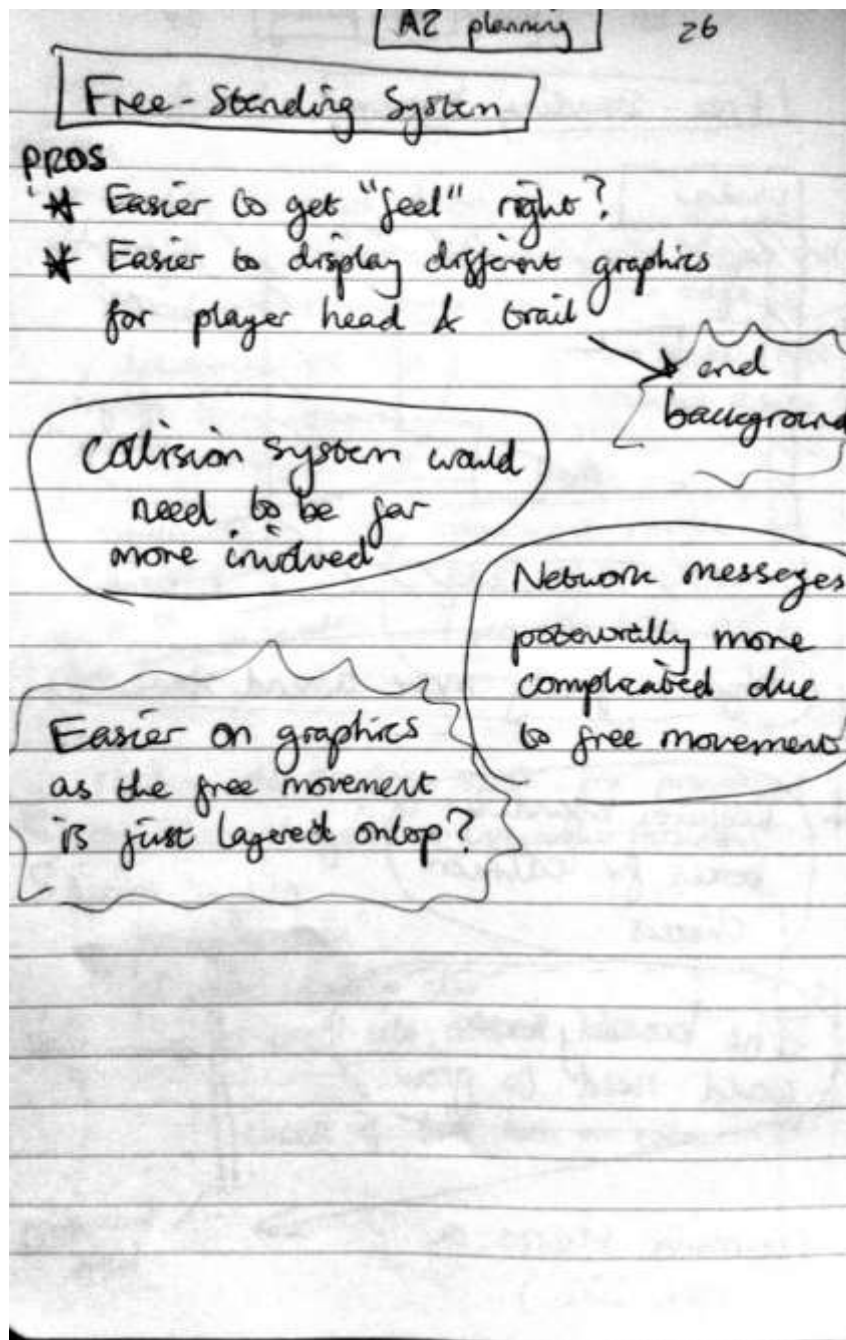 A2 planning 26
Free-Standing System
PROS
* Easier to get "feel" right?
* Easier to display different graphics
for player head & trail
and
background
Collision system would
need to be far
more involved
Network messages
potentially more
complicated due
to free movement
Easier on graphics
as the free movement
is just layered ontop?